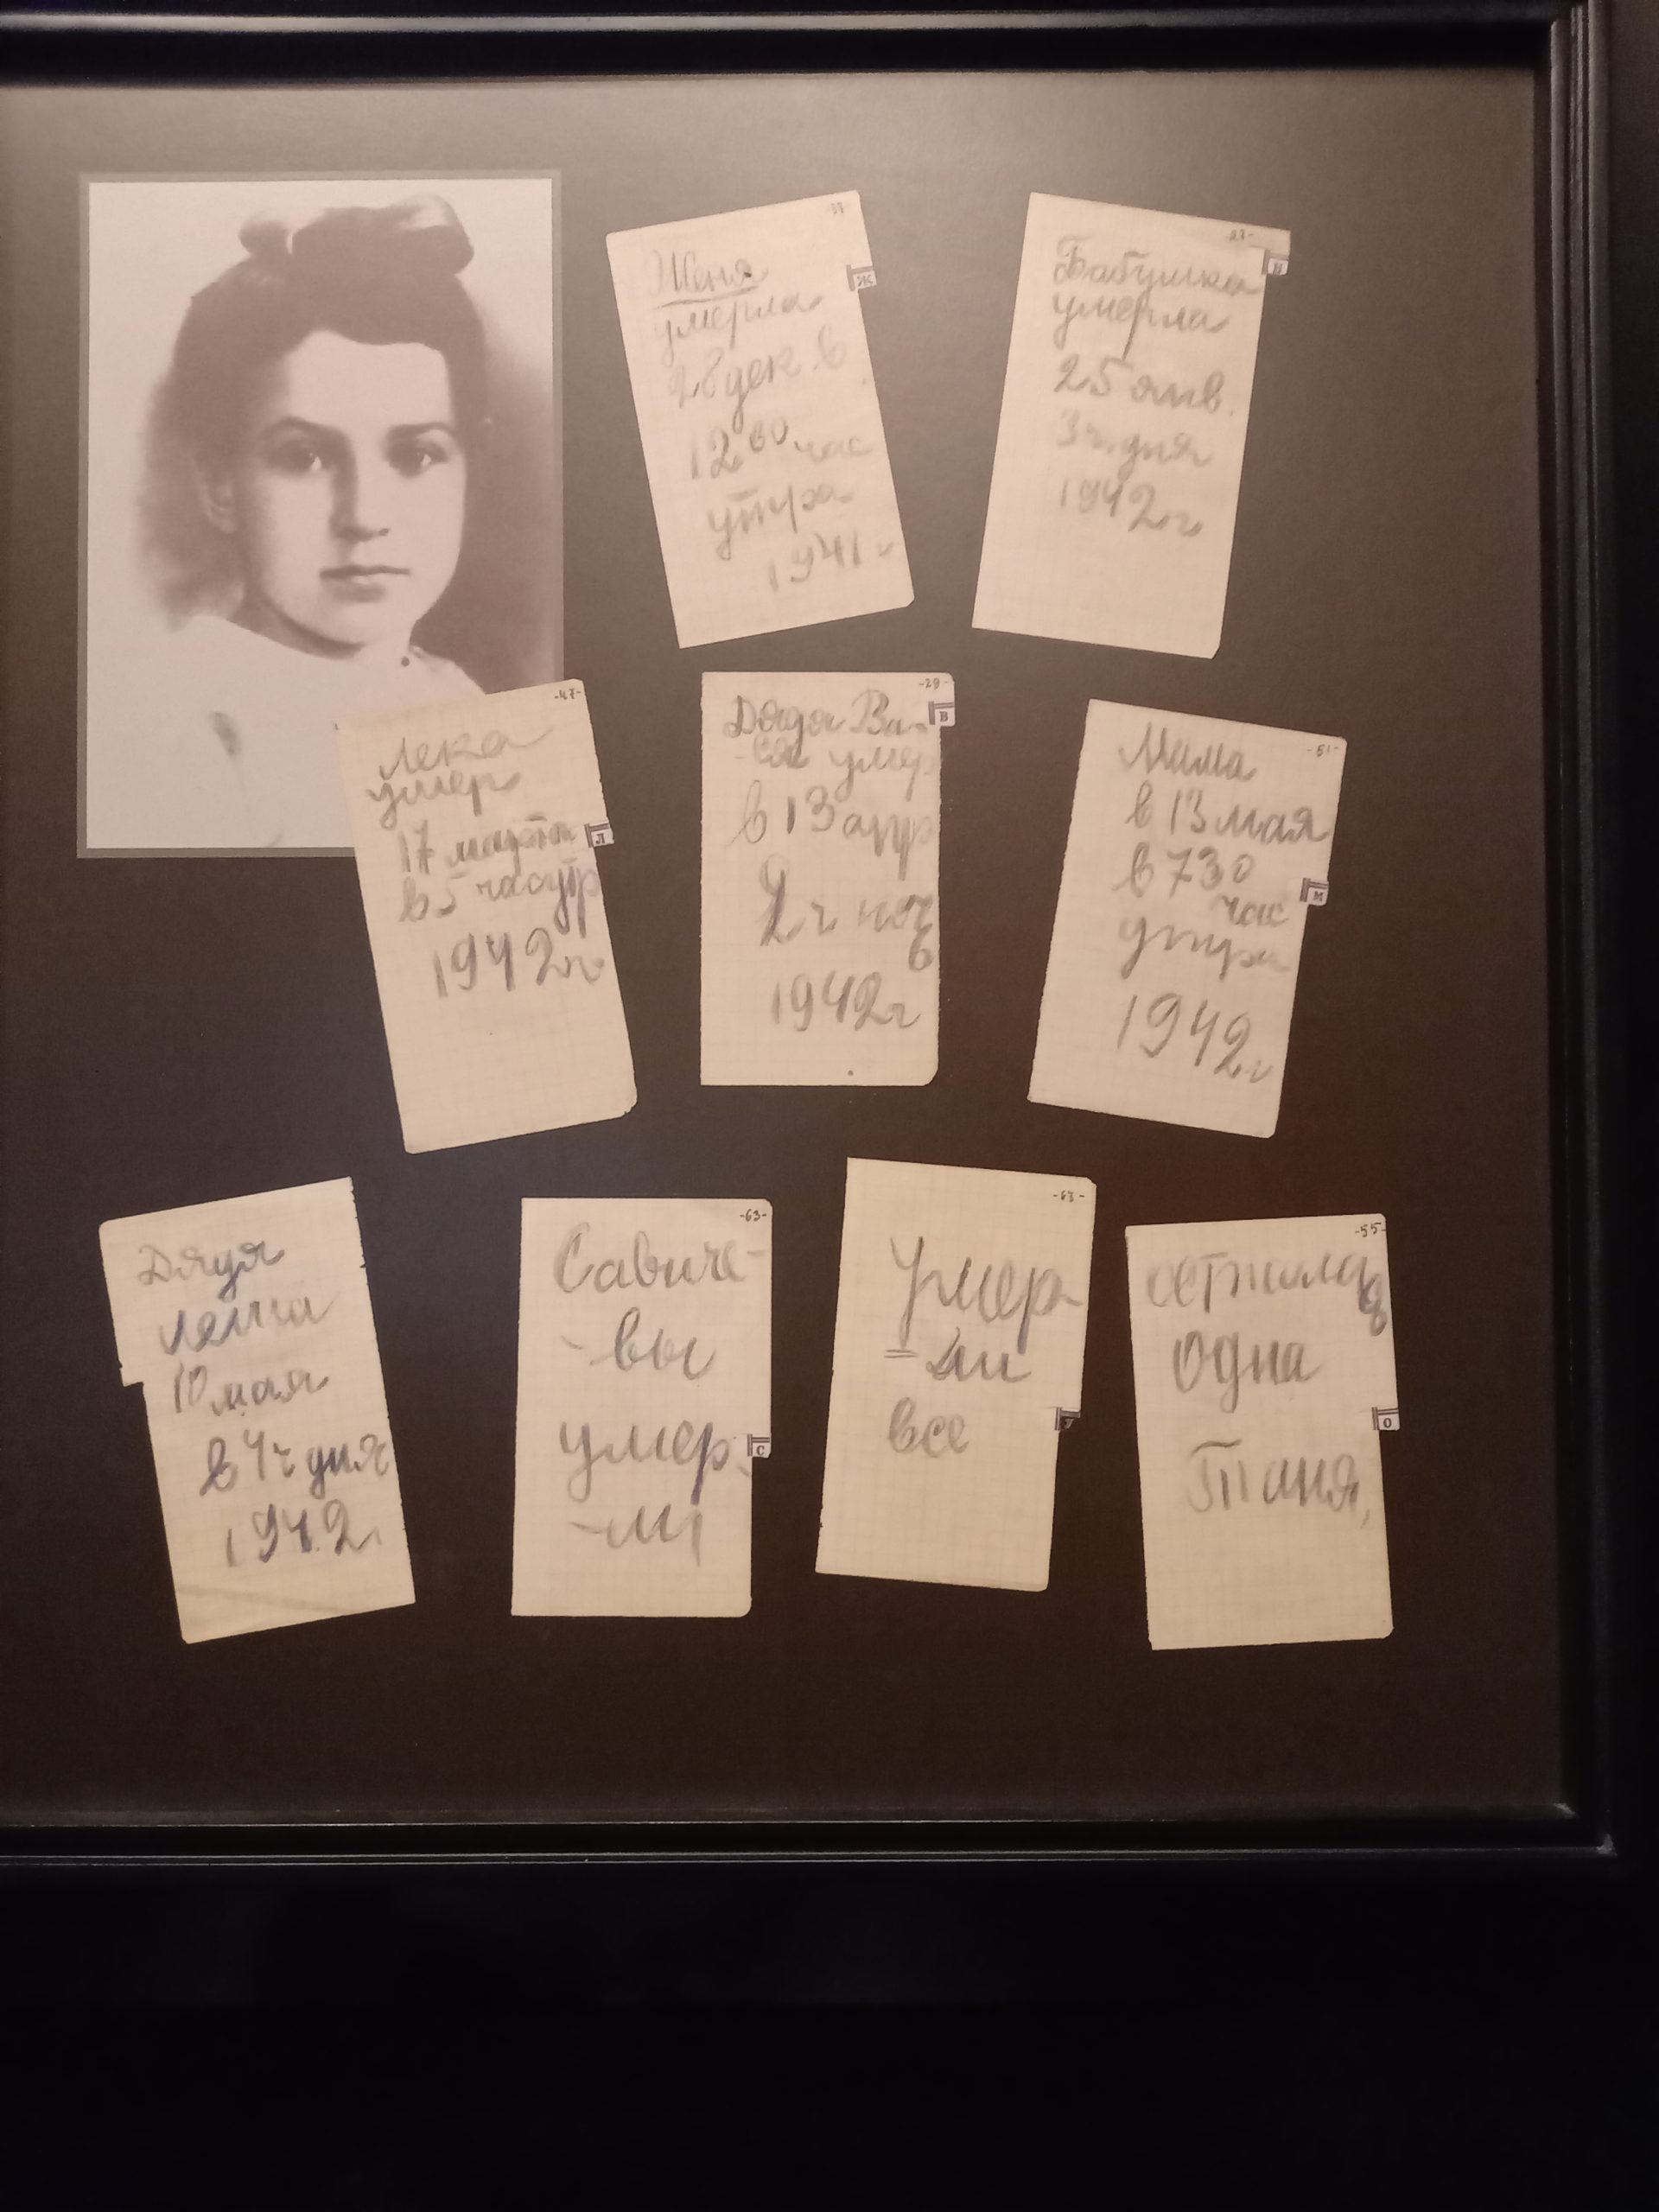 Женя
умерла
28 дек. в
12 00 час
утра
1941 г
-27-
Бабушка
умерла
25 янв.
3 ч. дня
1942 г
-47-
Лека
умер
17 марта
в 5 час утр
1942 г
Л
-29-
Дядя Ва-
ся умер
в 13 апр
2 ч ноч
1942 г
В
-51-
Мама
в 13 мая
в 7 30
час
утра
1942 г
М
Дядя
Леша
10 мая
в 4 ч дня
1942
-63-
Савиче-
-вы
умер-
-ли
С
-67-
Умер
=ли
все
У
-55-
осталась
одна
Таня
О
Ж